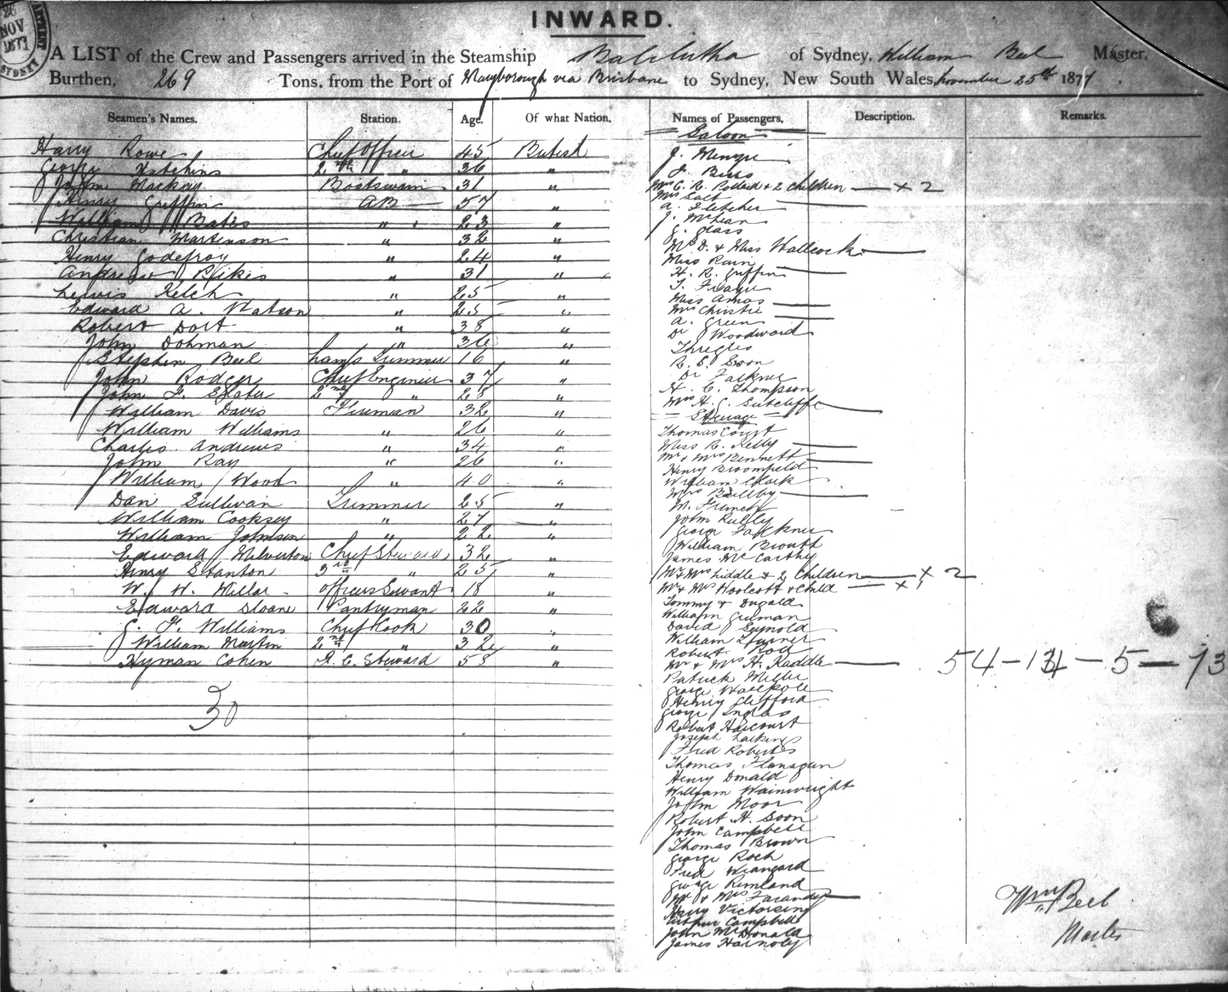 26 NOV 1877 SYDNEY
INWARD.
A LIST of the Crew and Passengers arrived in the Steamship Balclutha of Sydney, William Beel Master,
Burthen, 269 Tons, from the Port of Maryborough via Brisbane to Sydney, New South Wales, November 25th 1877
Seamen's Names. Station. Age. Of what Nation. Names of Passengers, Description. Remarks.
Harry Rowe Chief Officer 45 British
George Hutchins 2nd " 36 "
John Mackay Boatswain 31 "
Henry Griffin AB 57 "
William Bates " 23 "
Christian Martenson " 32 "
Henry Godefroy " 24 "
Andrew " 31 "
Lewis Kelch " 25 "
Edward A. Watson " 25 "
Robert Dort " 38 "
John Dohman " 36 "
Stephen Beel Trimmer 16 "
John Rodger Chief Engineer 37 "
John F. Slater 2nd " 28 "
William Davis Fireman 32 "
William Williams " 26 "
Charles Andrews " 34 "
John Ray " 26 "
William Wood " 40 "
Dan Sullivan Trimmer 25 "
William Cooksey " 27 "
William Johnson " 22 "
Edward Melverton Chief Steward 32 "
Henry Stanton 2nd " 25 "
W. H. Millar Officers Servant 18 "
Edward Sloane Pantryman 22 "
J. F. Williams Chief Cook 30 "
William Martin 2nd " 32 "
Hyman Cohen F. C. Steward 58 "
30
Saloon
J. Menzie
J. Beers
Mrs C. R. Pollard & 2 Children — x 2
Mrs Salt
A. Fletcher
J. McLean
J. Glass
Mr D. & Miss Wallcock
Miss Rain
H. R. Griffin
T. Fraser
Miss Amos
Mrs Christie
A. Green
Dr Woodward
R. E. Soon
Dr Falkner
H. C. Thompson
Mrs H. C. Sutcliffe
Steerage
Thomas Court
Miss R. Kelly
Mr & Mrs Bennett
Henry Broomfield
William Clark
Mrs Bellby
M. French
John Reilly
George Falkner
William Broutd
James McCarthy
Mr & Mrs Liddle & 2 Children — x 2
Mr & Mrs Woolcott & Child — x 1
Tommy & Dugald
William Gulman
David Reynold
William Turner
Robert Roll
Mr & Mrs H. Kaddle
Patrick Miller
George Wallpole
Henry Clifford
George Inglas
Robert Harcourt
Joseph Larkins
Fred Roberts
Thomas Flanagan
Henry Donald
William Wainwright
John Moor
Robert H. Soon
John Campbell
Thomas Brown
George Roch
Fred Wiangard
George Rimland
Mr & Mrs Farandy
Harry Victorsen
Arthur Campbell
John McDonald
James Harnoby
54 – 14 – 5 — 73
Wm Beel
Master